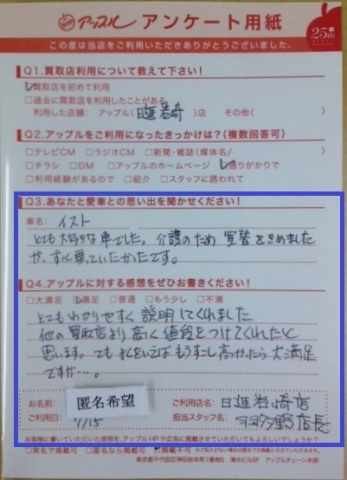 アップル アンケート用紙
25th
この度は当店をご利用いただきありがとうございました。
Q1.買取店利用について教えて下さい!
買取店を初めて利用
□過去に買取店を利用したことがある
利用した店舗: アップル(日進岩崎)店 その他( )
Q2.アップルをご利用になったきっかけは?(複数回答可)
□テレビCM □ラジオCM □新聞・雑誌(媒体名/ )
□チラシ □DM □アップルのホームページ 通りがかりで
□利用経験があるので □紹介 □スタッフに誘われて
Q3.あなたと愛車との思い出を聞かせください!
車名: イスト
とても大好きな車でした。介護のため買替をきめました
が、ずっと乗っていたかったです。
Q4.アップルに対する感想をぜひお書きください!
□大満足 満足 □普通 □もう少し □不満
とてもわかりやすく説明してくれました
他の買取店より高く値段をつけてくれたと
思います。でも よくをいえば もうすこし高かったら大満足
ですが…。
お名前: 匿名希望 ご利用店名: 日進岩崎店
ご利用日: 7/15 担当スタッフ名: 店長
お客様に書いていただいた感想を、アップルHPや広告に掲載させていただいてもよろしいでしょうか?
□実名で掲載可 □匿名なら掲載可 掲載不可
東京都千代田区神田錦本町1番地5 アップルチェーン本部